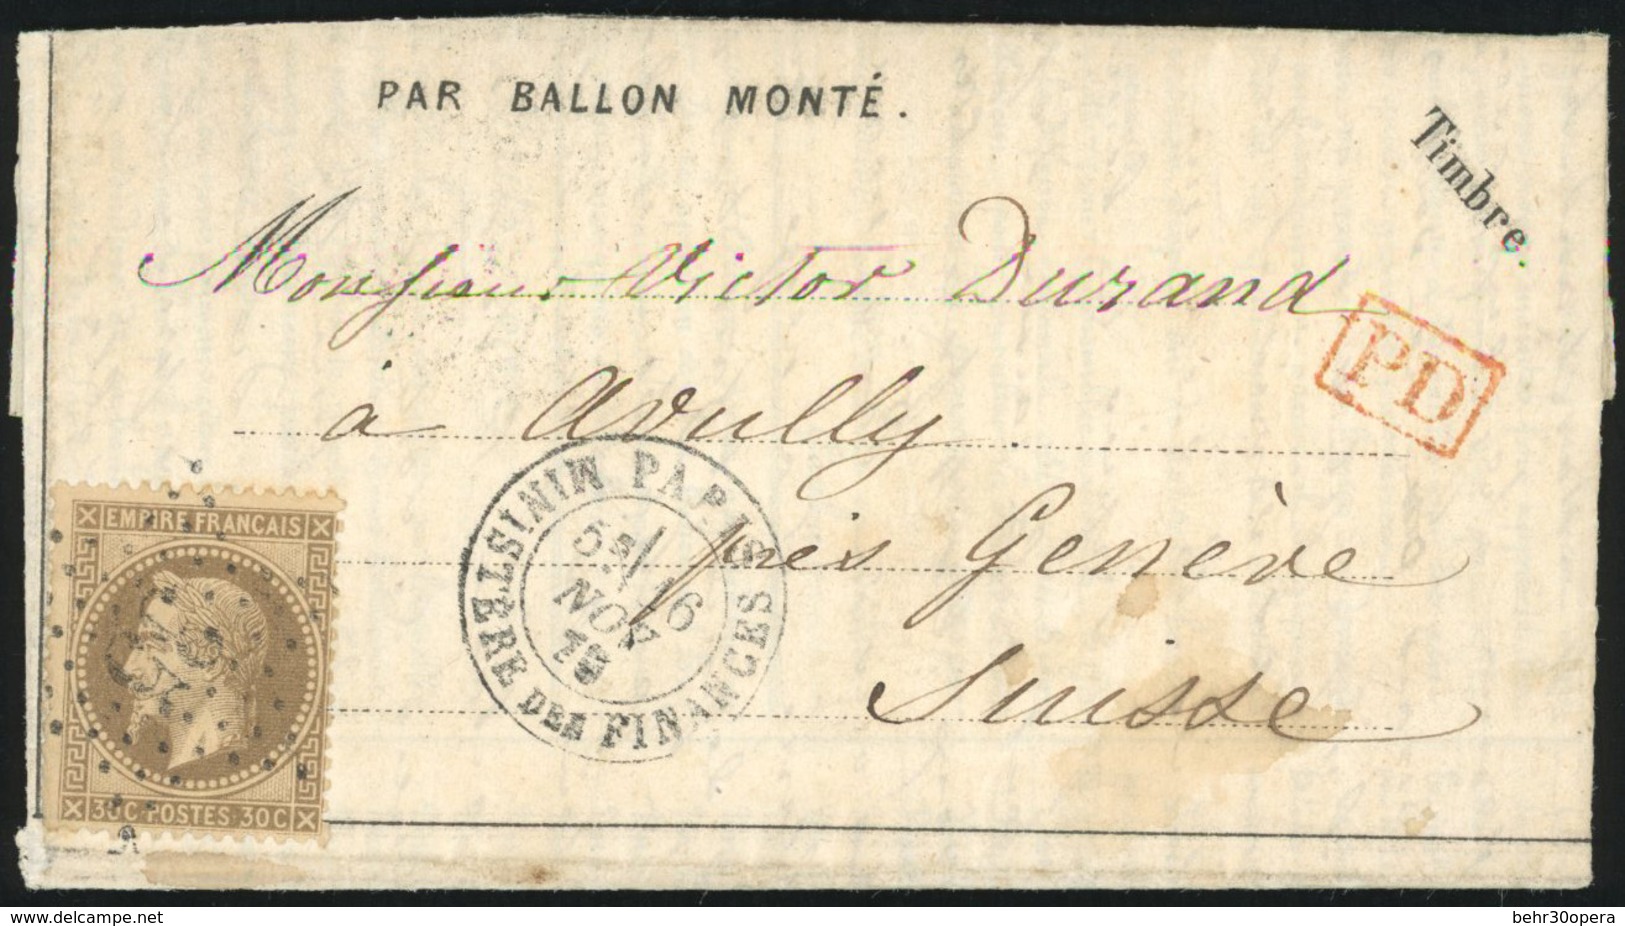 PAR BALLON MONTÉ.
Timbre.
Monsieur Victor Durand
PD
à Avully
près Genève
Suisse
PARIS MINISTÈRE DES FINANCES
5E/
16
NOV
70
EMPIRE FRANCAIS
30C POSTES 30C
www.delcampe.net
behr30opera